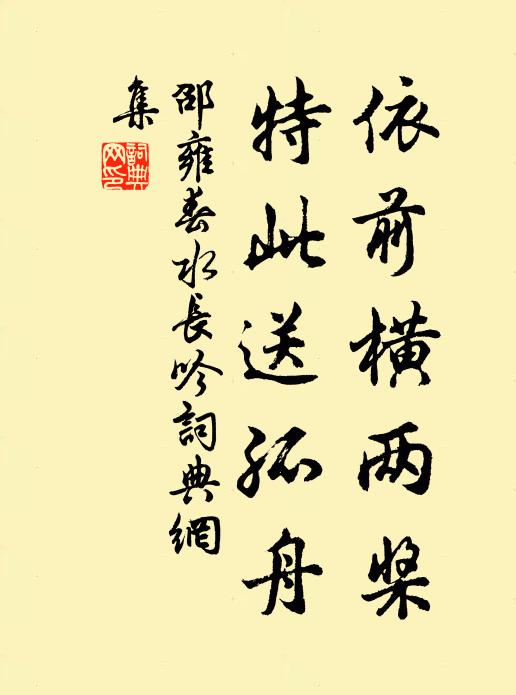 依前橫两槳
特此送孤舟
邵雍春水長吟詞典網
集
詞典網印